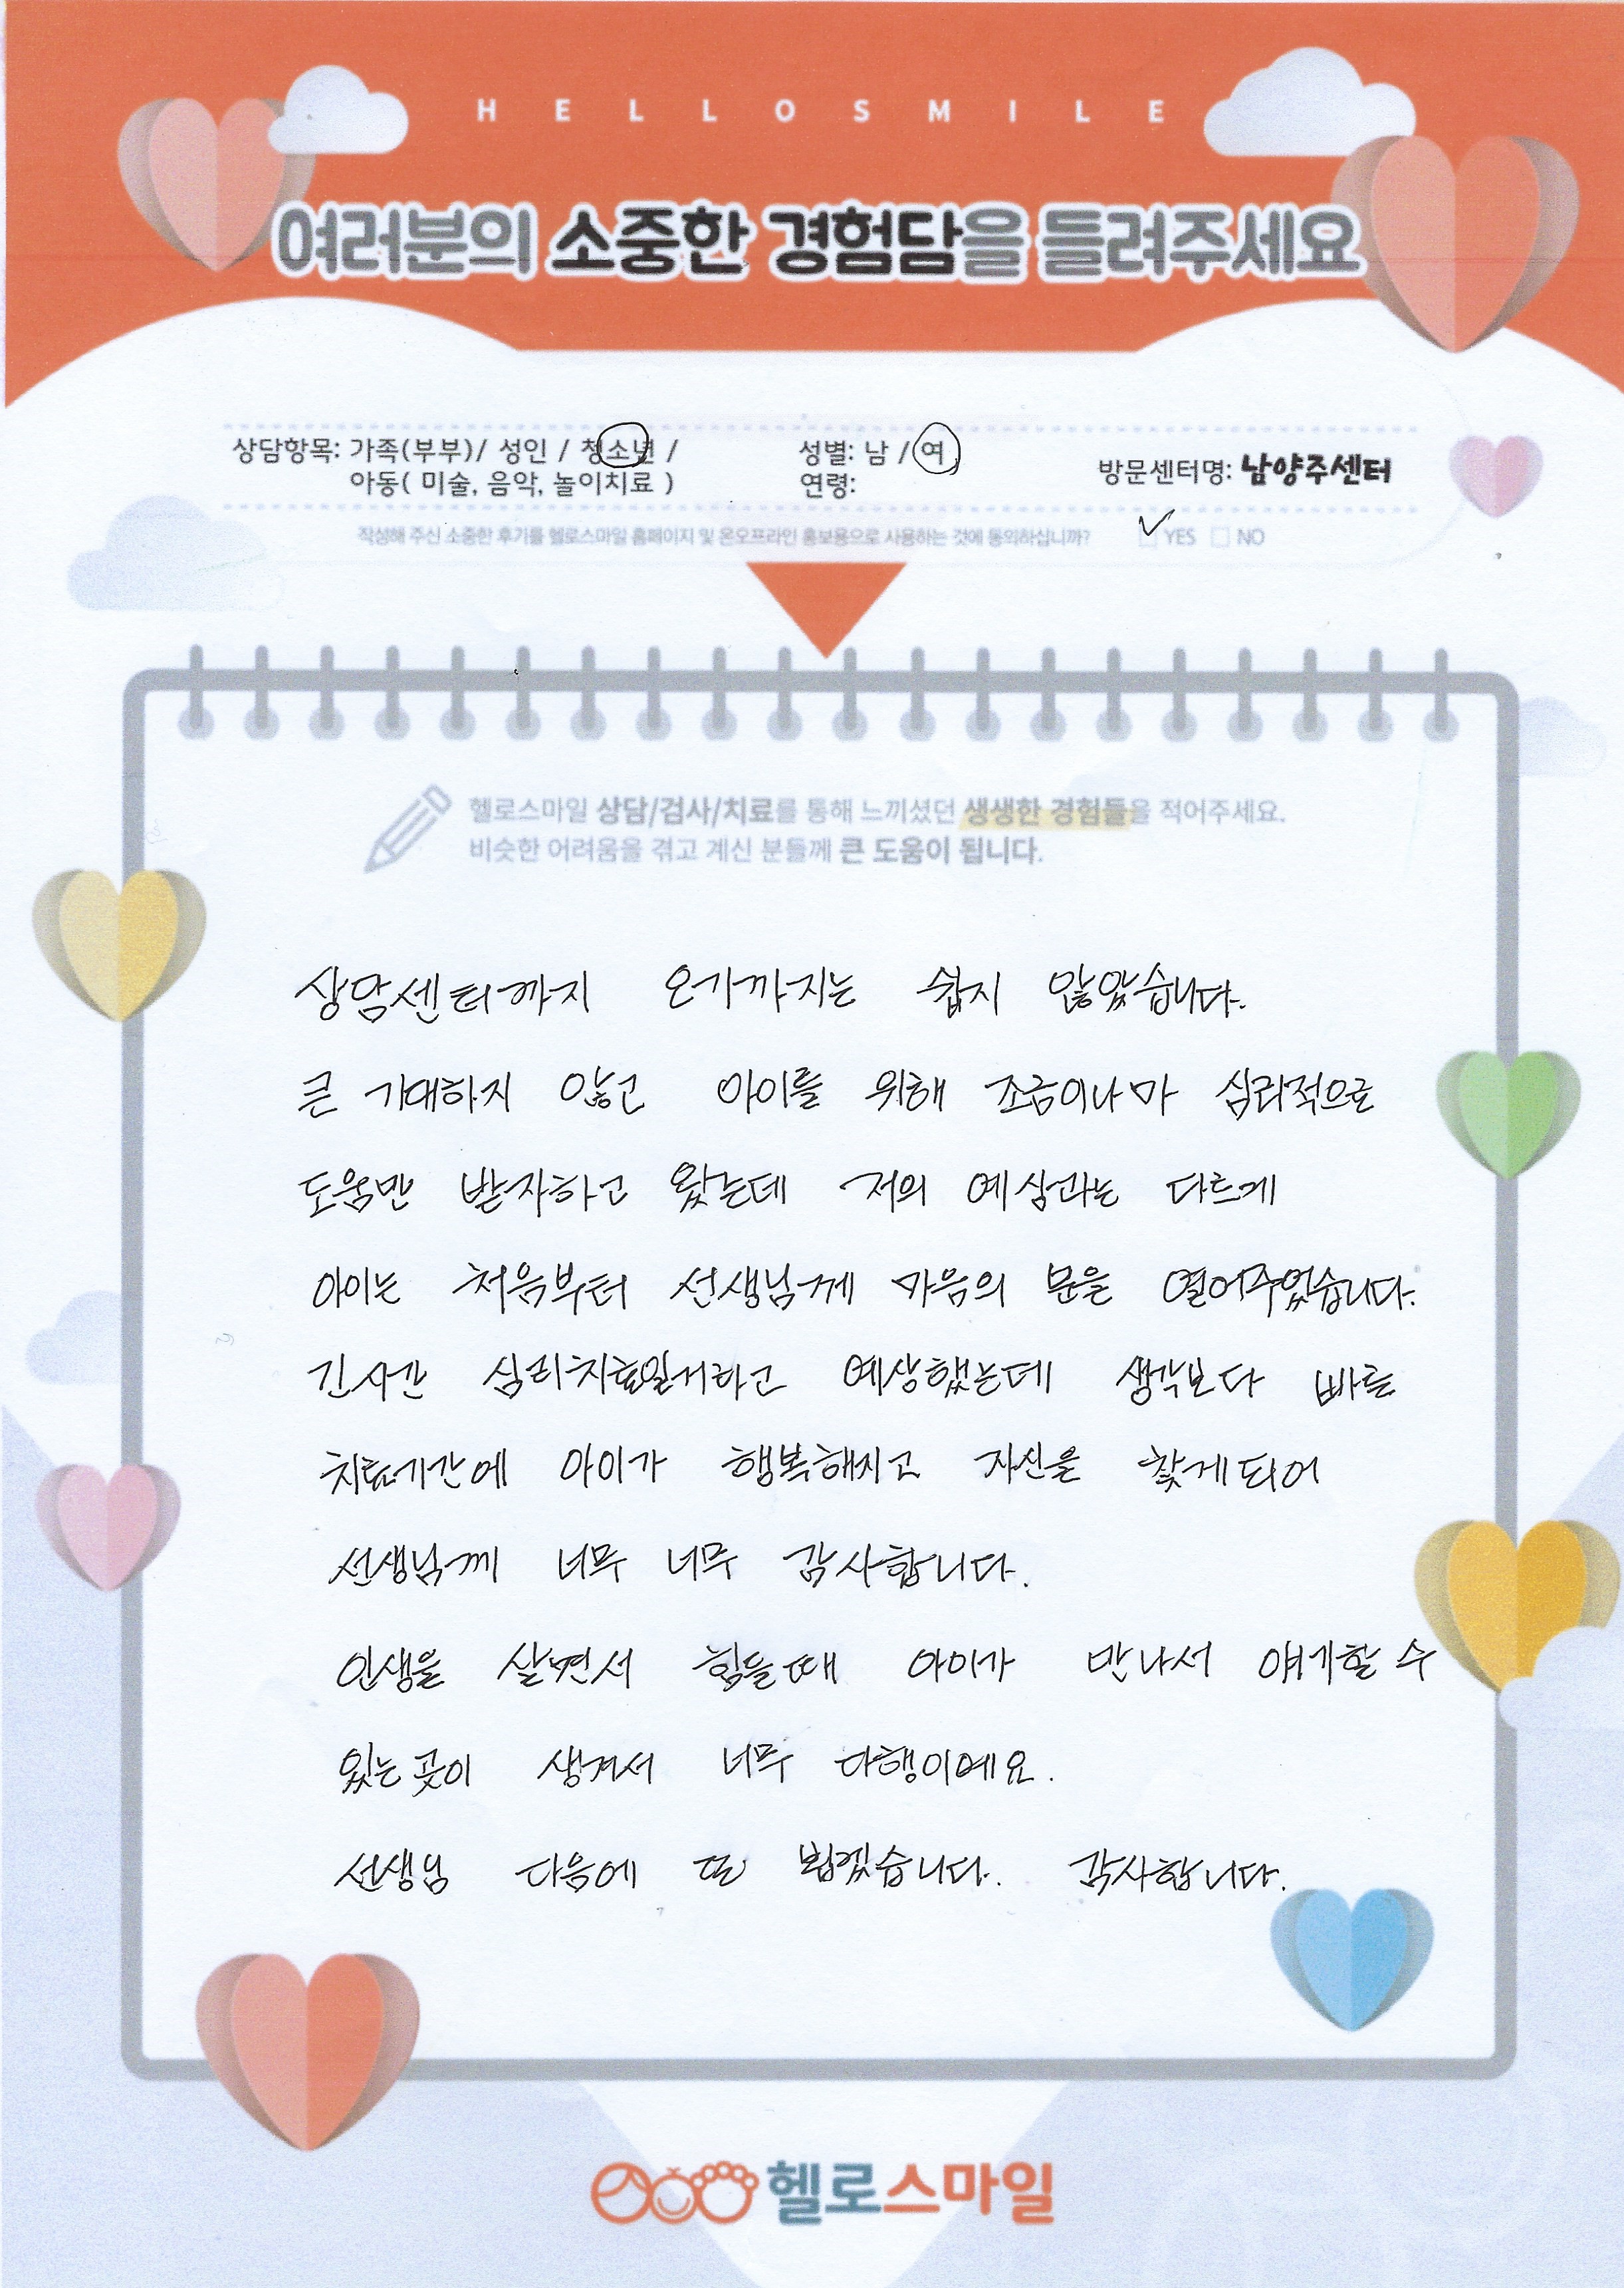 HELLOSMILE
여러분의 소중한 경험담을 들려주세요
상담항목: 가족(부부)/ 성인 / 청소년 /
아동( 미술, 음악, 놀이치료 )
성별: 남 / 여
연령:
방문센터명: 남양주센터
작성해 주신 소중한 후기를 헬로스마일 홈페이지 및 온오프라인 홍보용으로 사용하는 것에 동의하십니까? YES NO
헬로스마일 상담/검사/치료를 통해 느끼셨던 생생한 경험들을 적어주세요.
비슷한 어려움을 겪고 계신 분들께 큰 도움이 됩니다.
상담센터까지 오기까지는 쉽지 않았습니다.
큰 기대하지 않고 아이를 위해 조금이나마 심리적으로
도움만 받자하고 왔는데 저의 예상과는 다르게
아이는 처음부터 선생님께 마음의 문을 열어주었습니다.
긴시간 심리치료일거라고 예상했는데 생각보다 빠른
치료기간에 아이가 행복해지고 자신을 찾게되어
선생님께 너무 너무 감사합니다.
인생을 살면서 힘들때 아이가 만나서 얘기할 수
있는곳이 생겨서 너무 다행이예요.
선생님 다음에 또 뵙겠습니다. 감사합니다.
헬로스마일